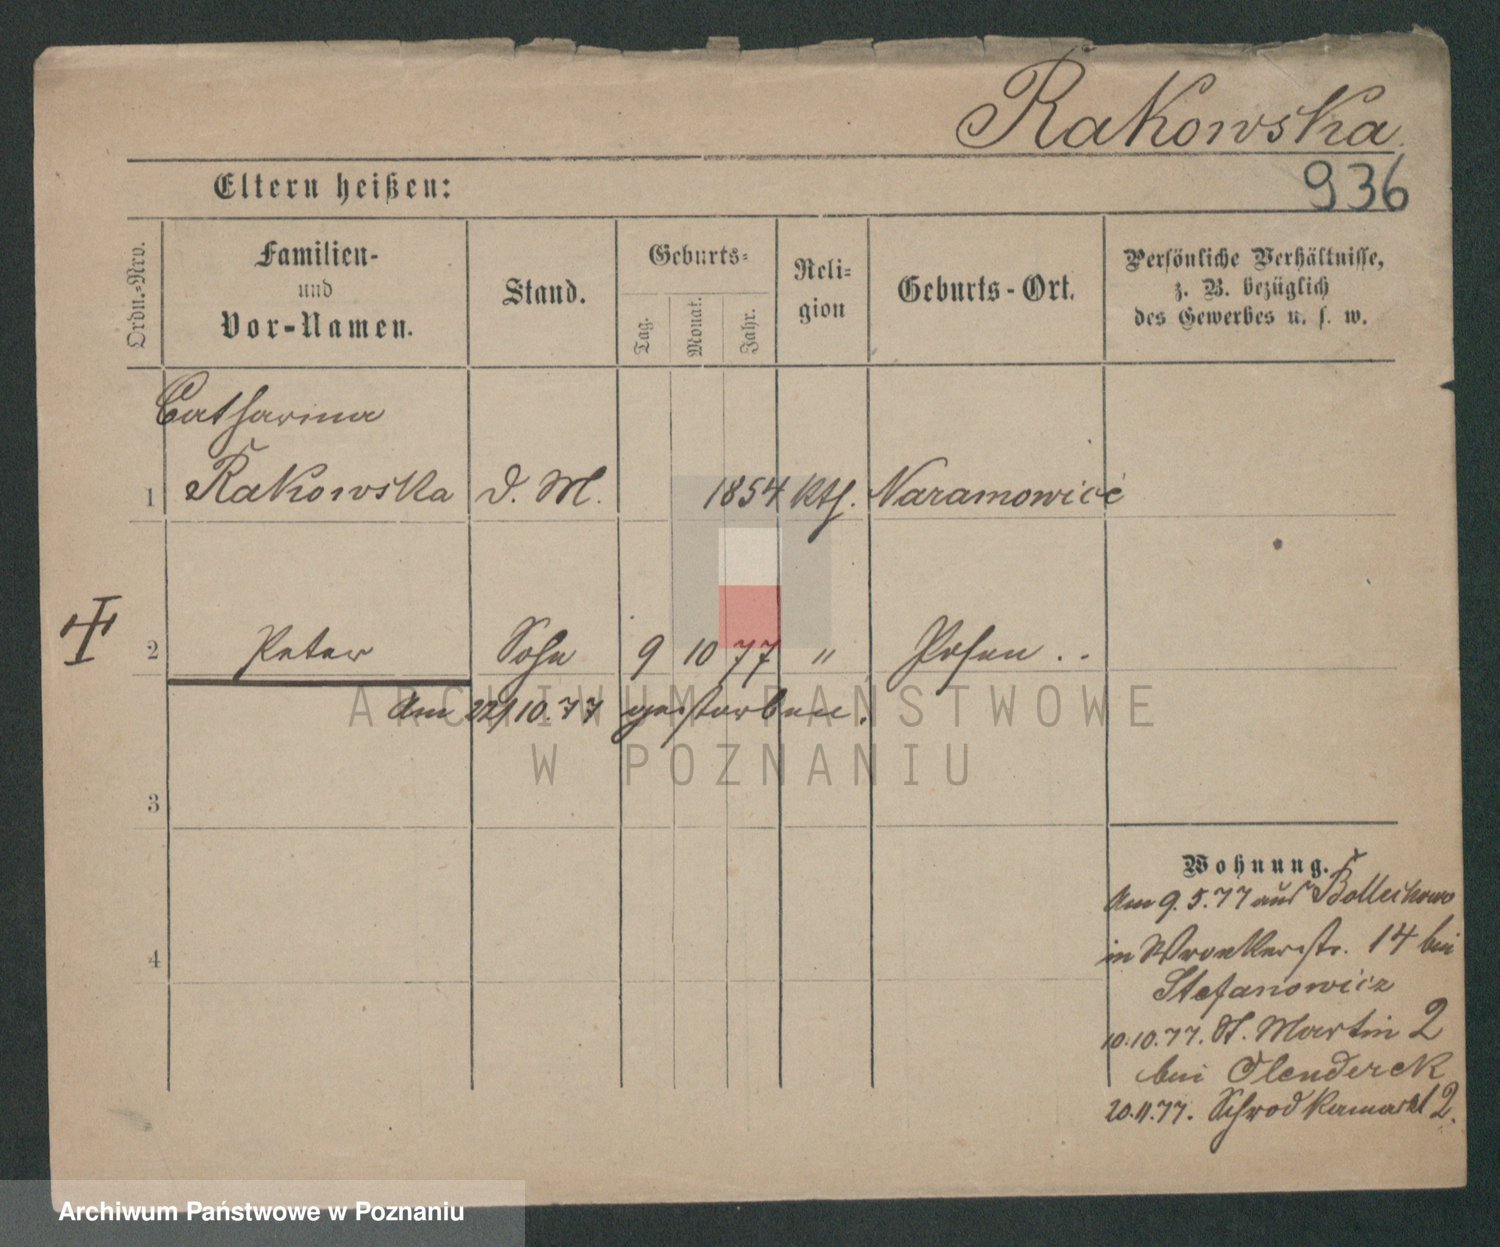 Rakowska
936
Eltern heißen:
Ordn.-Nro.
Familien-
und
Vor-Namen.
Stand.
Geburts-
Tag.
Monat.
Jahr.
Reli-
gion
Geburts-Ort.
Persönliche Verhältnisse,
z. B. bezüglich
des Gewerbes u. s. w.
Catharina
1 Rakowska d. M. 1854 kth. Naramowice
2 Peter Sohn 9 10 77 " Posen
Am 22/10.77 gestorben.
3
4
Wohnung.
Am 9.5.77 aus
in Wronkerstr. 14 bei
Stefanowicz
10.10.77. St. Martin 2
bei Olenderek
20.11.77. Schrodkamarkt 2.
ARCHIWUM PAŃSTWOWE
W POZNANIU
Archiwum Państwowe w Poznaniu